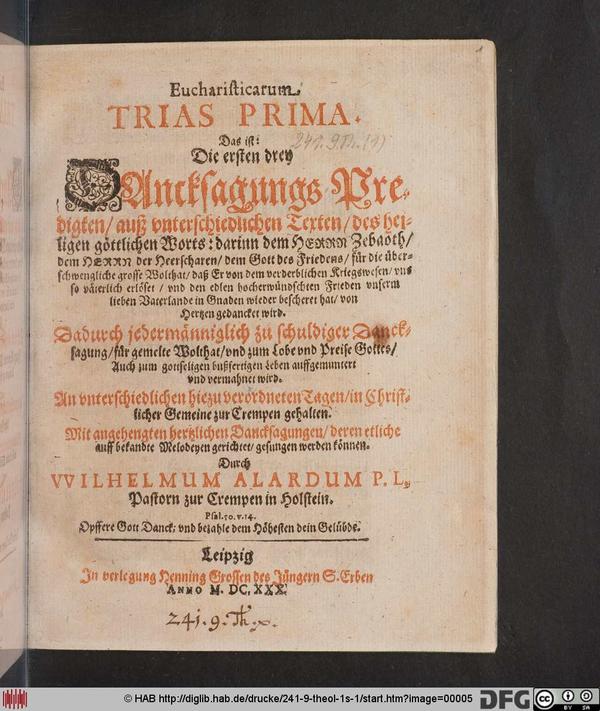 1
Eucharisticarum
TRIAS PRIMA.
241. 9. Th. (1)
Das ist:
Die ersten drey
DAncksagungs Pre-
digten/ auß vnterschiedlichen Texten/ des hei-
ligen göttlichen Worts: darinn dem HERRN Zebaoth/
dem HERRN der Heerscharen/ dem Gott des Friedens/ für die über-
schwengliche grosse Wolthat/ daß Er von dem verderblichen Kriegswesen/ vns
so väterlich erlöset/ vnd den edlen hocherwündschten Frieden vnserm
lieben Vaterlande in Gnaden wieder bescheret hat/ von
Hertzen gedancket wird.
Dadurch jedermänniglich zu schuldiger Danck-
sagung/ für gemelte Wolthat/ vnd zum Lobe vnd Preise Gottes/
Auch zum gottseligen bußfertigen Leben auffgemuntert
vnd vermahnet wird.
An vnterschiedlichen hiezu verordneten Tagen/ in Christ-
licher Gemeine zur Crempen gehalten.
Mit angehengten hertzlichen Dancksagungen/ deren etliche
auff bekandte Melodeyen gerichtet/ gesungen werden können.
Durch
VVILHELMUM ALARDUM P. L.
Pastorn zur Crempen in Holstein.
Psal. 50. v. 14.
Opffere Gott Danck: vnd bezahle dem Höhesten dein Gelübde.
Leipzig
In verlegung Henning Grossen des Jüngern S. Erben
ANNO M. DC. XXX.
241. 9. Th.
© HAB http://diglib.hab.de/drucke/241-9-theol-1s-1/start.htm?image=00005
DFG
CC BY SA